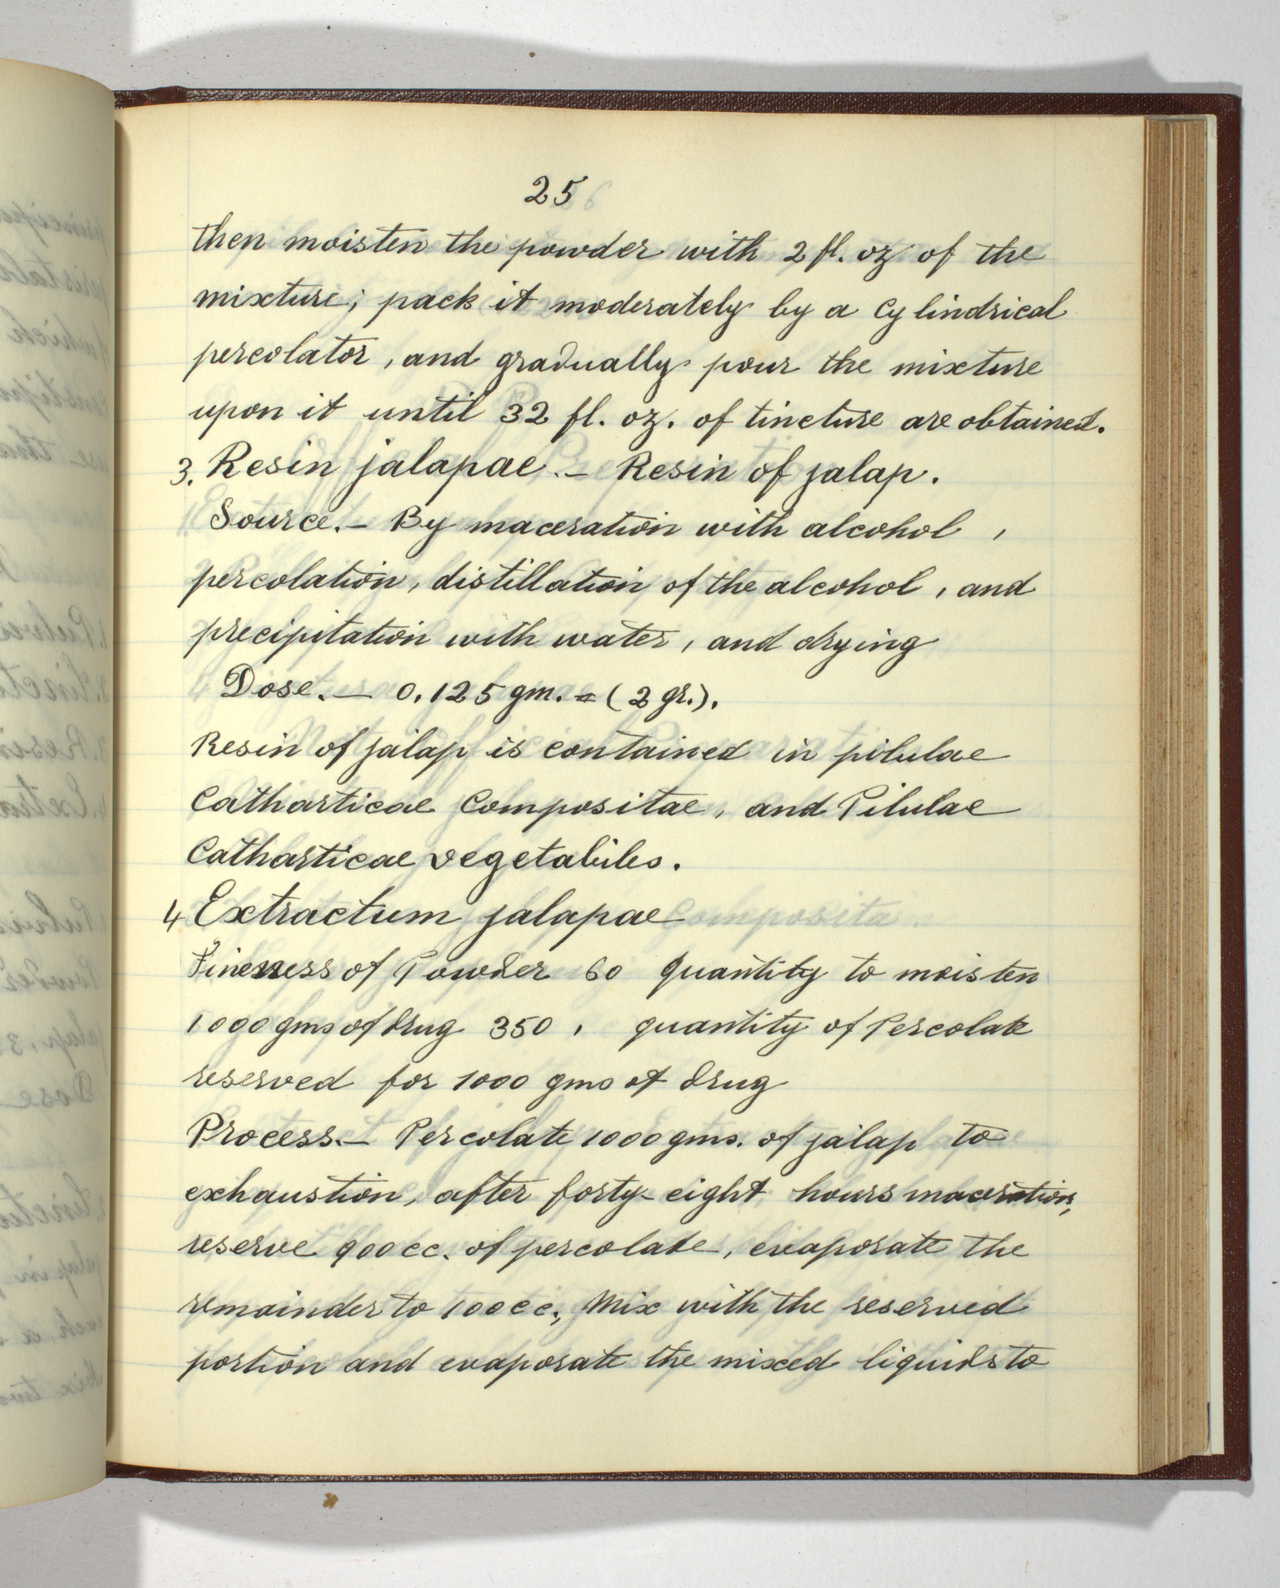 25
then moisten the powder with 2 fl. oz of the
mixture; pack it moderately by a cylindrical
percolator, and gradually pour the mixture
upon it until 32 fl. oz. of tincture are obtained.
3. Resin jalapae. — Resin of jalap.
Source. — By maceration with alcohol,
percolation, distillation of the alcohol, and
precipitation with water, and drying
Dose. — 0.125 gm. = (2 gr.).
Resin of jalap is contained in pilulae
Catharticae Compositae, and Pilulae
Catharticae vegetabiles.
4 Extractum jalapae
Fineness of Powder 60 Quantity to moisten
1000 gms of drug 350, quantity of Percolate
reserved for 1000 gms of drug
Process. — Percolate 1000 gms. of jalap to
exhaustion, after forty-eight hours maceration,
reserve 900 cc. of percolate, evaporate the
remainder to 100 cc., Mix with the reserved
portion and evaporate the mixed liquids to